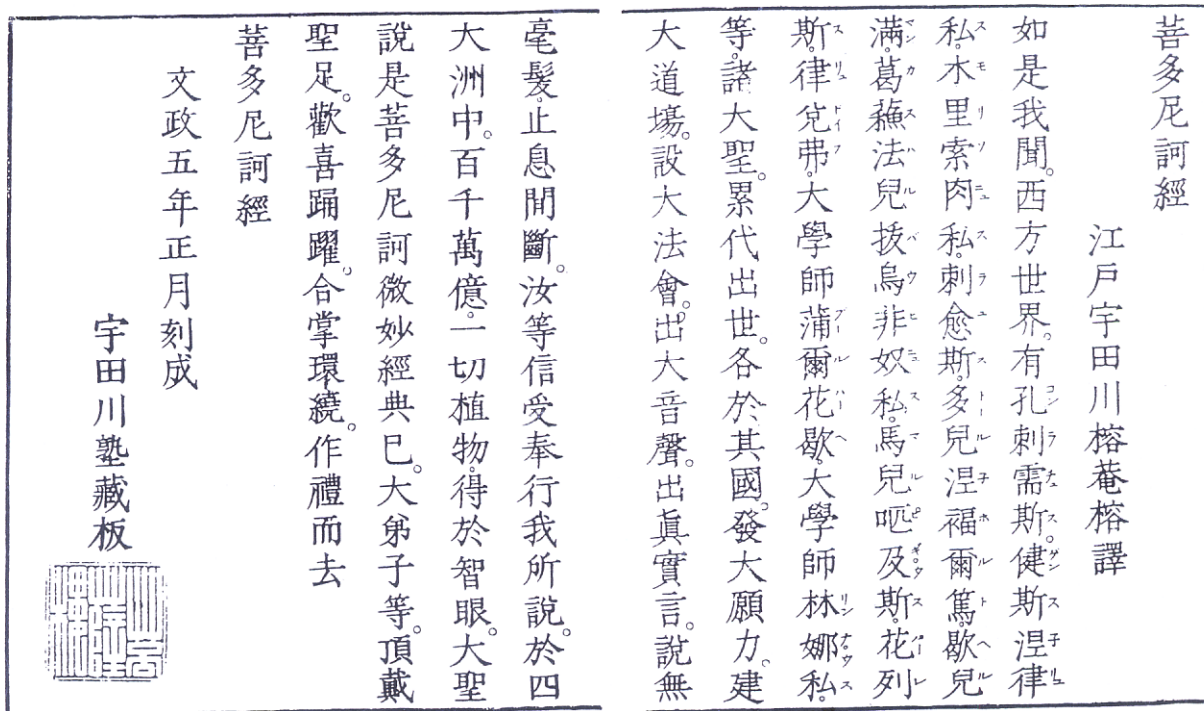 菩多尼訶經
江戸宇田川榕菴榕譯
如是我聞。西方世界。有孔刺需斯。健斯涅律
私。木里索肉私。刺愈斯。多兒涅福爾篤。歇兒
滿。葛蘓法兒拔烏非奴私。馬兒呬及斯。花列
斯。律兌弗。大學師蒲爾花歇。大學師林娜私。
等。諸大聖。累代出世。各於其國。發大願力。建
大道場。設大法會。出大音聲。出眞實言。說無
毫髮止息間斷。汝等信受奉行我所說。於四
大洲中。百千萬億。一切植物。得於智眼。大聖
說是菩多尼訶微妙經典巳。大弟子等。頂戴
聖足。歡喜踊躍。合掌環繞。作禮而去
菩多尼訶經
文政五年正月刻成
宇田川塾藏板